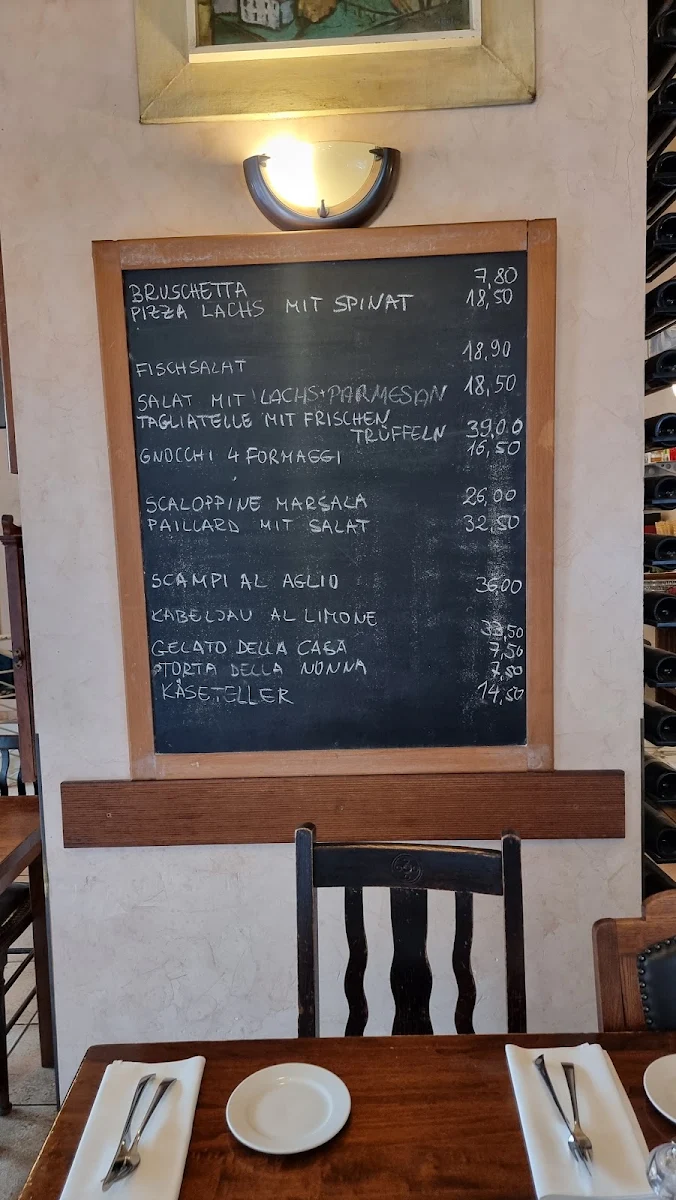 BRUSCHETTA 7,80
PIZZA LACHS MIT SPINAT 18,50
FISCHSALAT 18,90
SALAT MIT LACHS+PARMESAN 18,50
TAGLIATELLE MIT FRISCHEN
TRÜFFELN 39,00
GNOCCHI 4 FORMAGGI 16,50
SCALOPPINE MARSALA 26,00
PAILLARD MIT SALAT 32,50
SCAMPI AL AGLIO 36,00
KABELJAU AL LIMONE 33,50
GELATO DELLA CASA 7,50
TORTA DELLA NONNA 7,50
KÄSETELLER 14,50